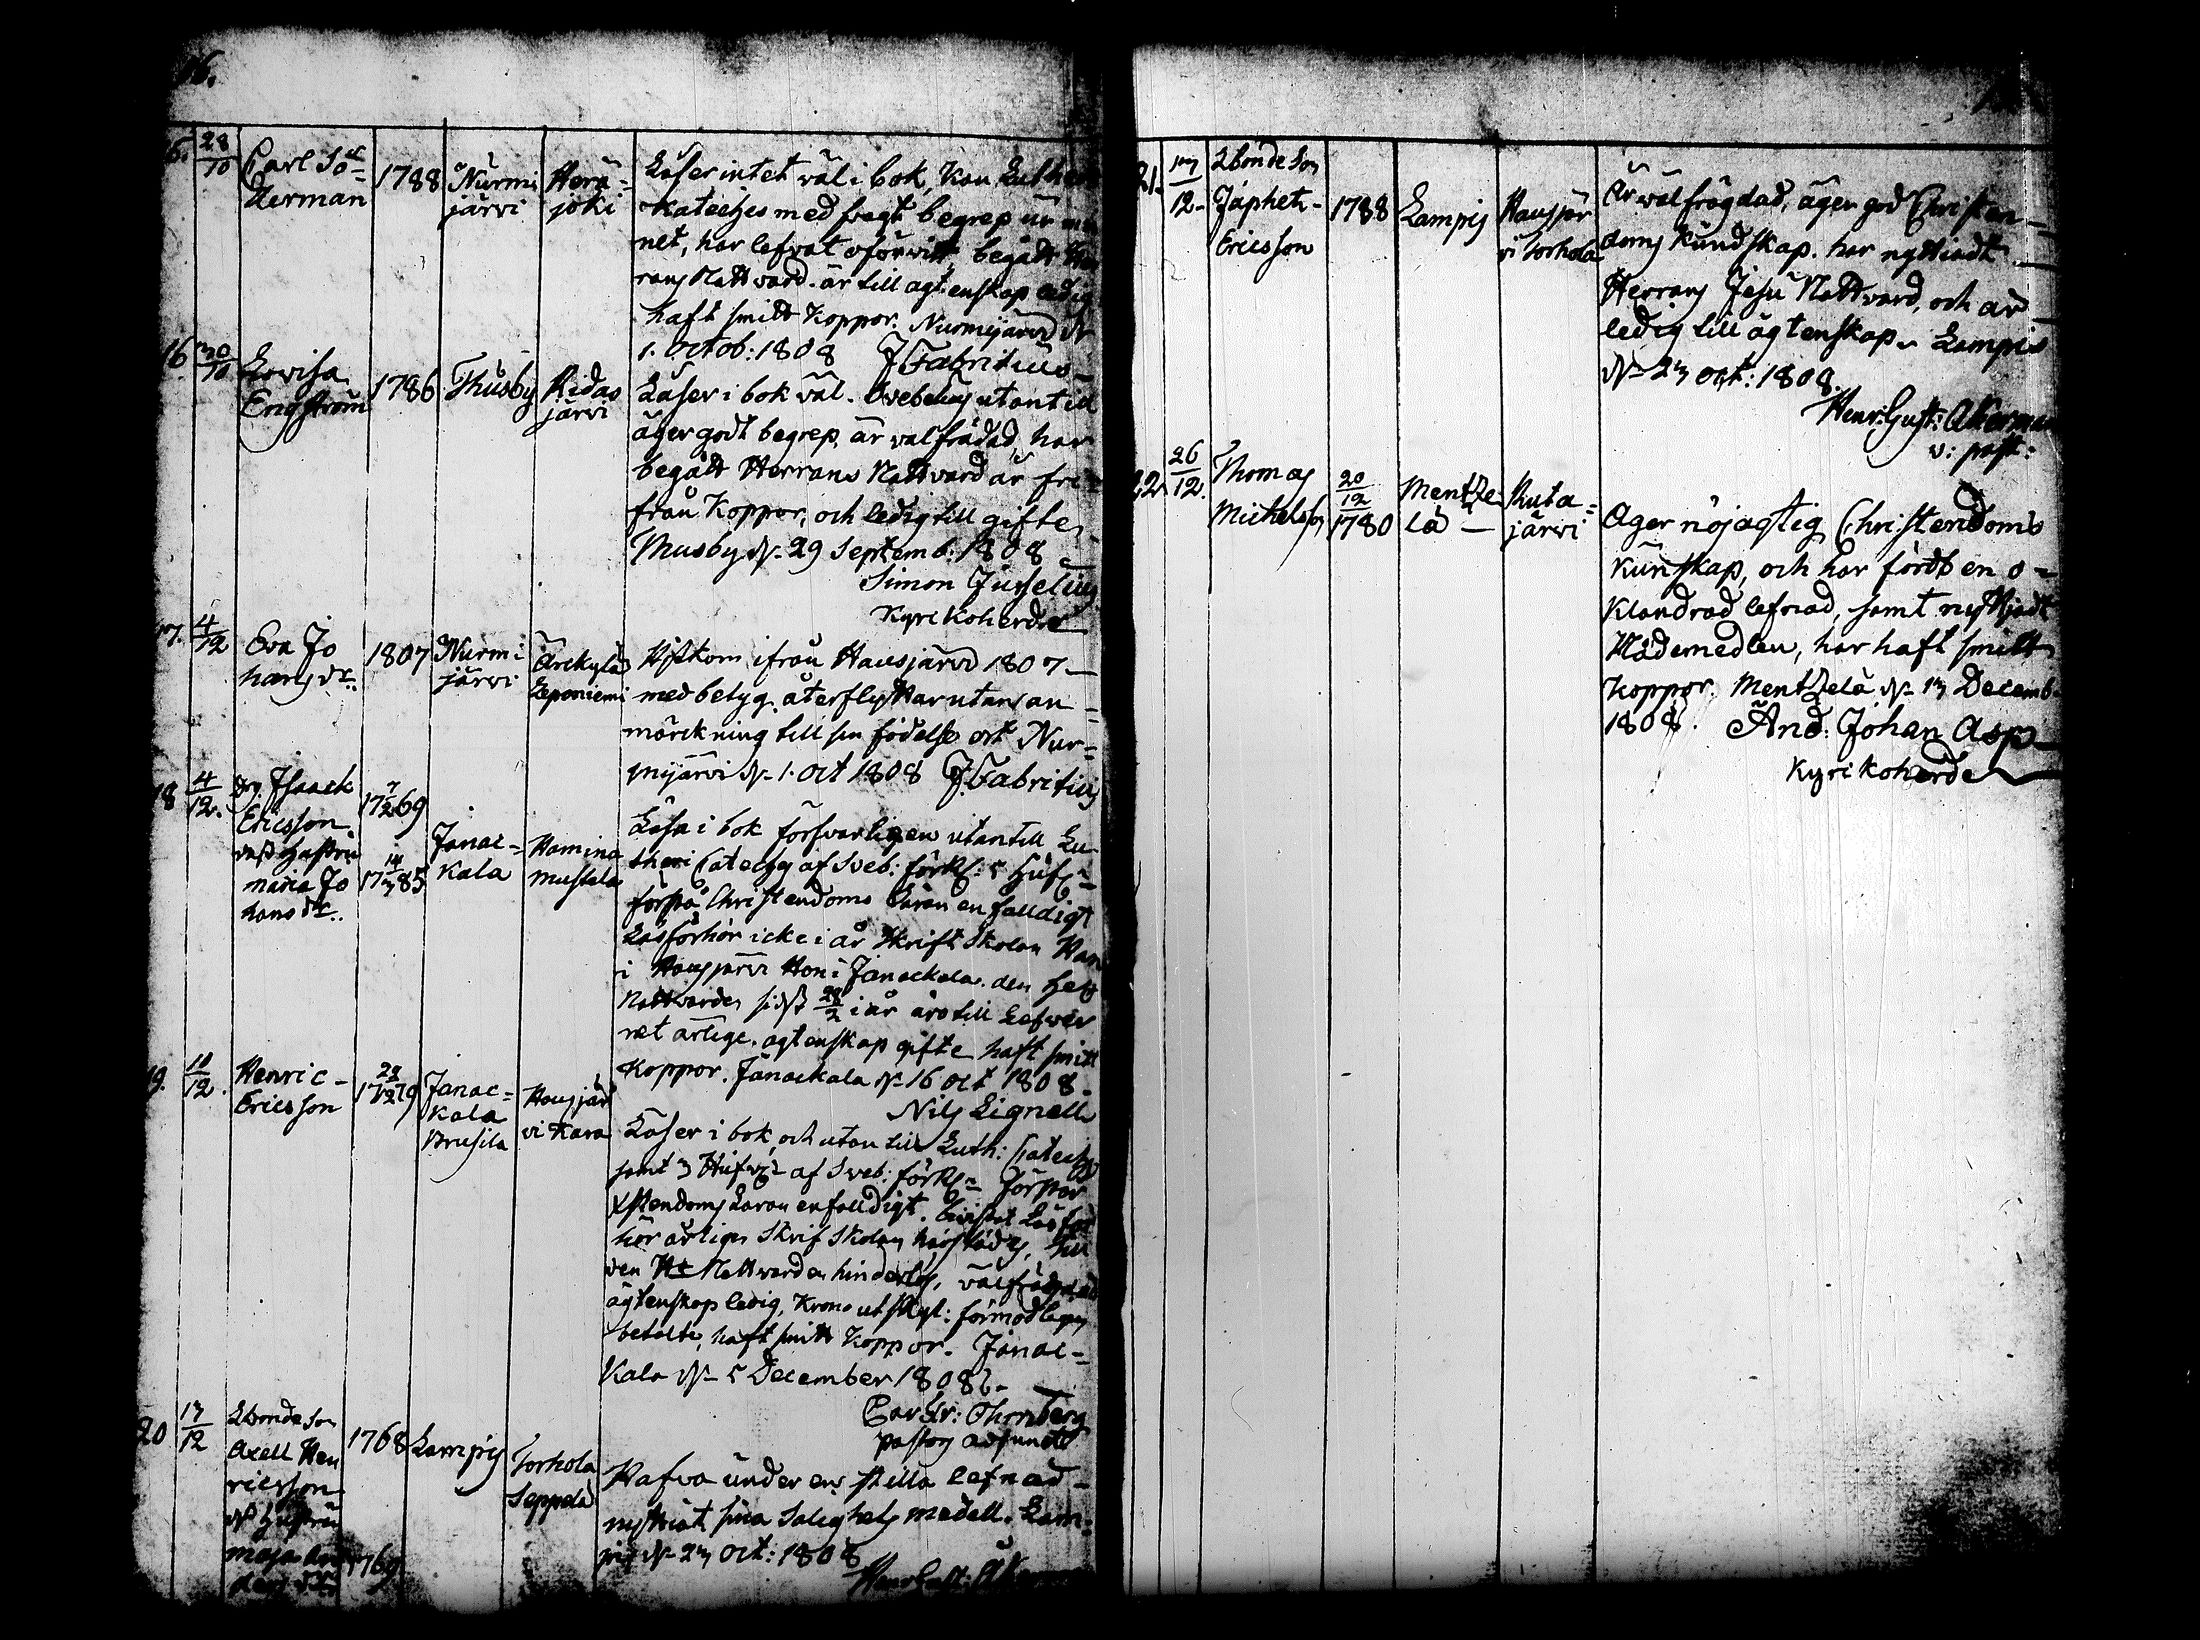 6.
6. 28/10 Carl Sö=
derman
1788
Nurmi
järvi
Herä=
joki
Läser intet väl i bok, Kan Luthe
Kateches med svagt begrep ur min
net, har lefvat oförvitt begått Her
rans Nattvard. är till ägtenskap ledig
haft smitt Koppor. Nurmijärvi d:
1. Octob: 1808 J Fabritius
16 30/10 Lovisa
Engström
1786
Thusby
Ridas
järvi
Läser i bok väl. Svebelius utantill
äger godt begrep, är välfrädad, har
begått Herrans Nattvard är fri
från Koppor, och ledig till gifte
Thusby d. 29 Septemb. 1808
Simon Juselius
Kyrkoherde
17. 4/12 Eva Jo
hans dr.
1807
Nurmi
järvi
Ärekylä
Leponiemi
Hitkom ifrån Hausjärvi 1807
med betyg. återflyttar utan an=
märckning till sin födelse ort Nur=
mijärvi d. 1. Oct 1808 J. Fabritius
18 4/12. Dr. Isaack
Ericsson
dess hustru
Maria Jo
hans dr.
17 7/2 69
17 14/3 85
Janac=
kala
Hamina
Mustala
Läsa i bok försvarligen utantill Lu
theri Cateches af Sveb: förkl: 5 Hufs:
förstå Christendoms läran enfalldigt
Läsförhör icke i år Skrift Skolan Han
i Hausjärvi Hon i Janackala. den Hel
Nattvarden sidst 28/2 i år äro till Lefver
net ärlige. ägtenskap gifte haft smitt
Koppor. Janackala d. 16 Oct 1808.
Nils Lignell
19. 10/12. Henric
Ericsson
17 28/12 79
Janac=
kala
Brusila
Hausjär
vi Kara
Läser i bok, och utan till Luth: Cateches
samt 3 Hufv: af Sveb: förkl: Förstår
Xstendoms Läran enfalldigt. bevistat Läsför
hör årligen Skrif Skolan härstädes,
den H: Nattvarden hinderlös, välfrägdad
ägtenskap ledig, Krono utskyl: förmodligen
betalte, haft smitt Koppor. Janac=
kala d. 5 December 1808.
Car Gr: Ohrnberg
Pastors adjunct
20 13/12 Lbonde Son
Axell Hen
ricsson
dess hustru
Maja An
ders dr.
1768
1769
Lampis
Torhola
Seppälä
Hafva under en stilla lefnad
nyttiat sina Salighets medell. Lam=
pis d. 23 Oct: 1808
Henr Gust: Åkerman
21. 17/12. Lbonde Son
Japhet
Ericsson
1788
Lampis
Hausjär
vi Torhola
Är välfrägdad, äger god Christen
doms Kundskap. har nyttiadt
Herrans Jesu Nattvard, och är
ledig till ägtenskap. Lampis
d. 23 Oct: 1808.
Henr: Gust: Åkerman
v: past:
22. 26/12. Thomas
Michelsson
20/12
1780
Mentze
lä
Kuta=
järvi
Äger nöjagtig Christendoms
Kunskap, och har fördt en o=
klandrad lefnad, samt nyttjadt
Nådemedlen, har haft smitt
Koppor. Mentzelä d. 13 Decemb.
1808. And: Johan Asp
Kyrkoherde